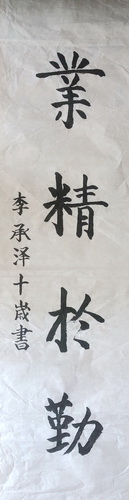 業精於勤
李承泽十歲書